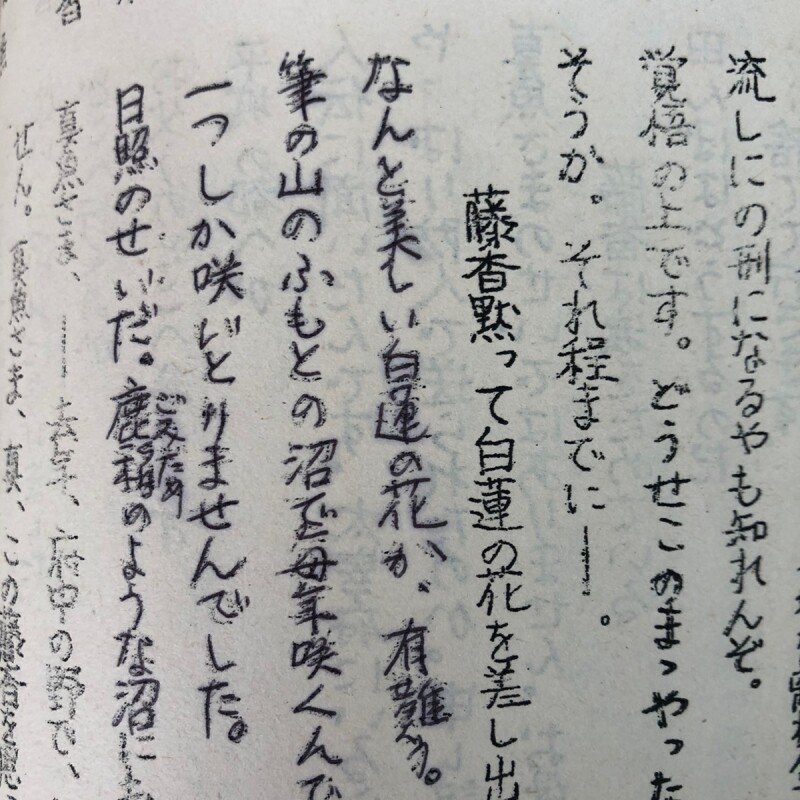 流しにの刑になるやも知れんぞ。
覚悟の上です。どうせこのまゝやった
そうか。それ程までに――。
藤杳黙って白蓮の花を差し出
なんと美しい白蓮の花か。有難う。
筆の山のふもとの沼で毎年咲くんで
一つしか咲いとりませんでした。
日照のせいだ。鹿穪のような沼に
ごえだめ
真魚さま、――去年、府中の野で、
せん。真魚さま、真、この